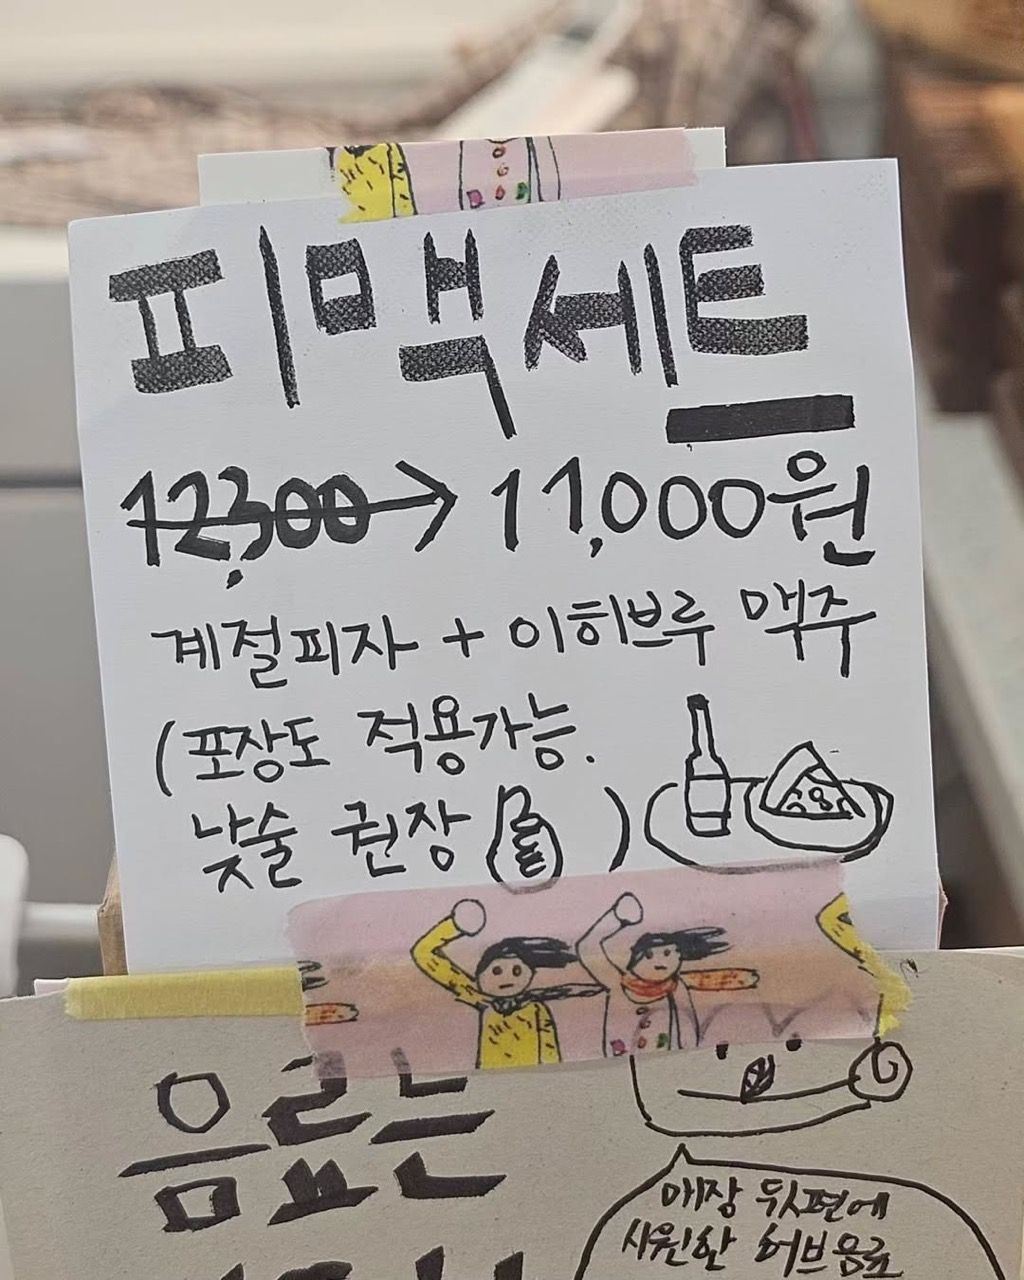 피맥세트
12,300 → 11,000원
계절피자 + 이히브루 맥주
(포장도 적용가능.
낮술 권장 )
음료는
매장 뒷편에
시원한 허브음료